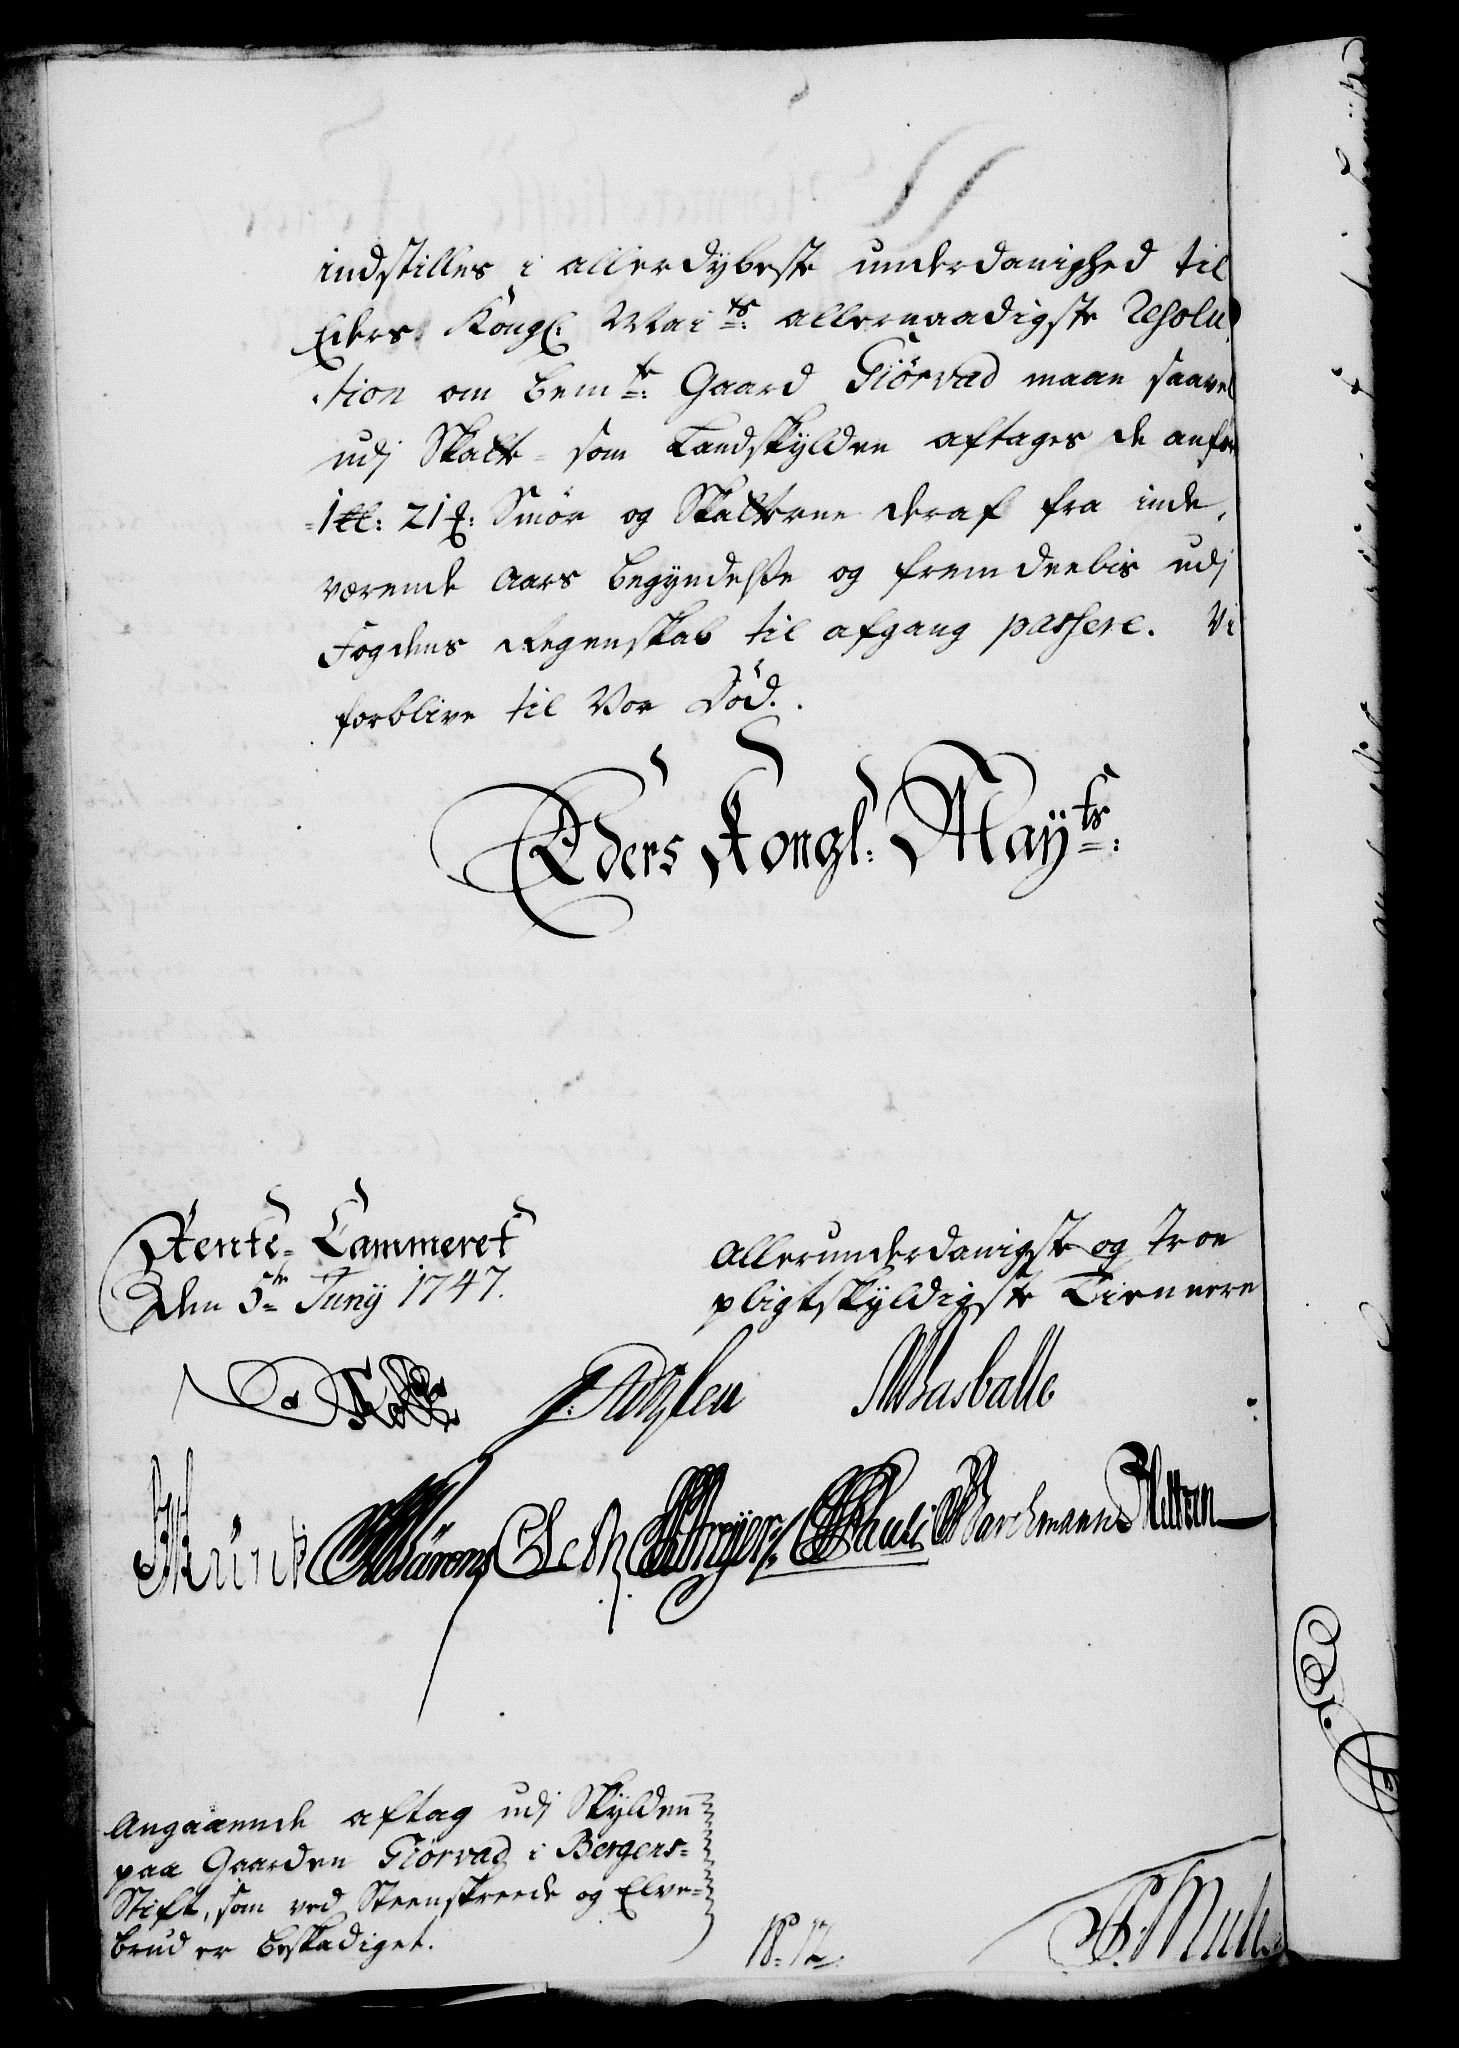 indstilles i allerdybeste underdanighed til
Eders Kongl: Mai^ts: allernaadigste Resolu-
tion om bem^te: Gaard Giörvad maae saavel
udj Skatt- som Landskylden aftages de anfør
1 21 Smör og Skatterne deraf fra inde-
værende Aars begyndelse og fremdeelis udj
Fogdens Regenskab til afgang passere. Vi
forblive til Vor Död.
Eders Kongl: May^ts:
Rente-Cammeret
Den 5^te Juny 1747.
Allerunderdanigste og troe
pligtskyldigste Tiennere
Angaaende aftag udj Skylden
paa Gaarden Giörvad i Bergens-
Stift, som ved Steenskreede og Elve-
brud er beskadiget.